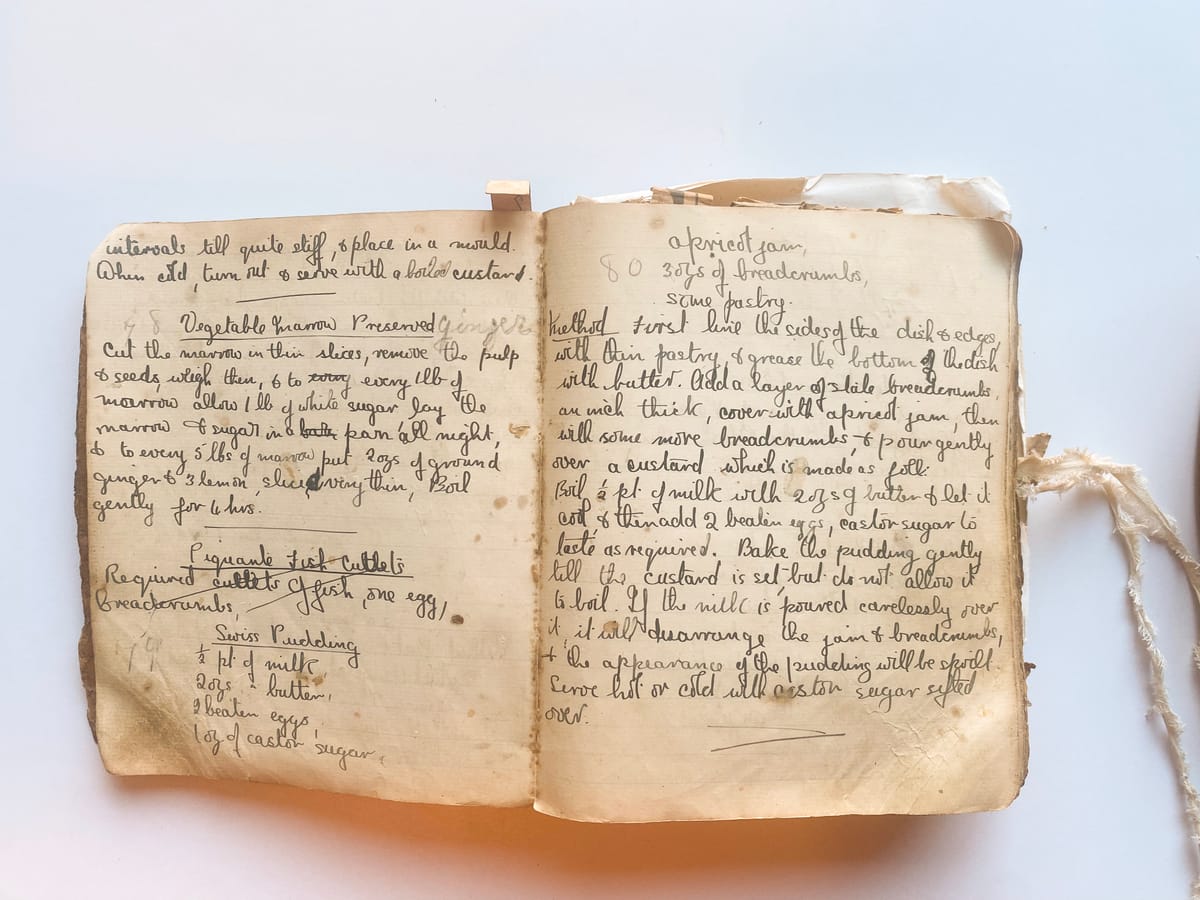 intervals till quite stiff, & place in a mould.
When cold, turn out & serve with a boiled custard.
78 Vegetable Marrow Preserved Ginger
Cut the marrow in thin slices, remove the pulp
& seeds, weigh then, & to every 1 lb of
marrow allow 1 lb of white sugar lay the
marrow & sugar in a pan all night,
& to every 5 lbs of marrow put 2 ozs of ground
ginger & 3 lemon, sliced very thin, Boil
gently for 4 hrs.
Piquante Fish Cutlets
Required cutlets of fish, one egg,
breadcrumbs,
79 Swiss Pudding
½ pt of milk
2 ozs " butter,
2 beaten eggs,
1 oz of castor sugar,
apricot jam,
80 3 ozs of breadcrumbs,
some pastry.
Method First line the sides of the dish & edges,
with thin pastry, & grease the bottom of the dish
with butter. Add a layer of stale breadcrumbs,
an inch thick, cover with apricot jam, then
with some more breadcrumbs, & pour gently
over a custard which is made as foll:
Boil ½ pt. of milk with 2 ozs of butter & let it
cool, & then add 2 beaten eggs, castor sugar to
taste as required. Bake the pudding gently
till the custard is set, but do not allow it
to boil. If the milk is poured carelessly over
it, it will disarrange the jam & breadcrumbs,
& the appearance of the pudding will be spoilt.
Serve hot or cold with castor sugar sifted
over.